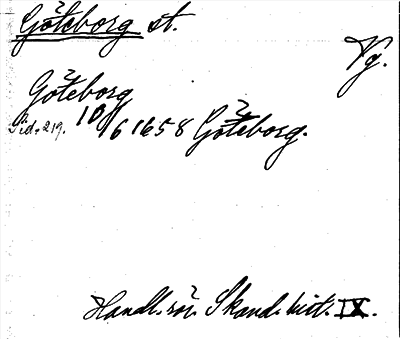 Göteborg st.
Vg.
Göteborg
Sid. 219. 10/6 1658 Göteborg.
Handl. rör. Skand. hist. IX.